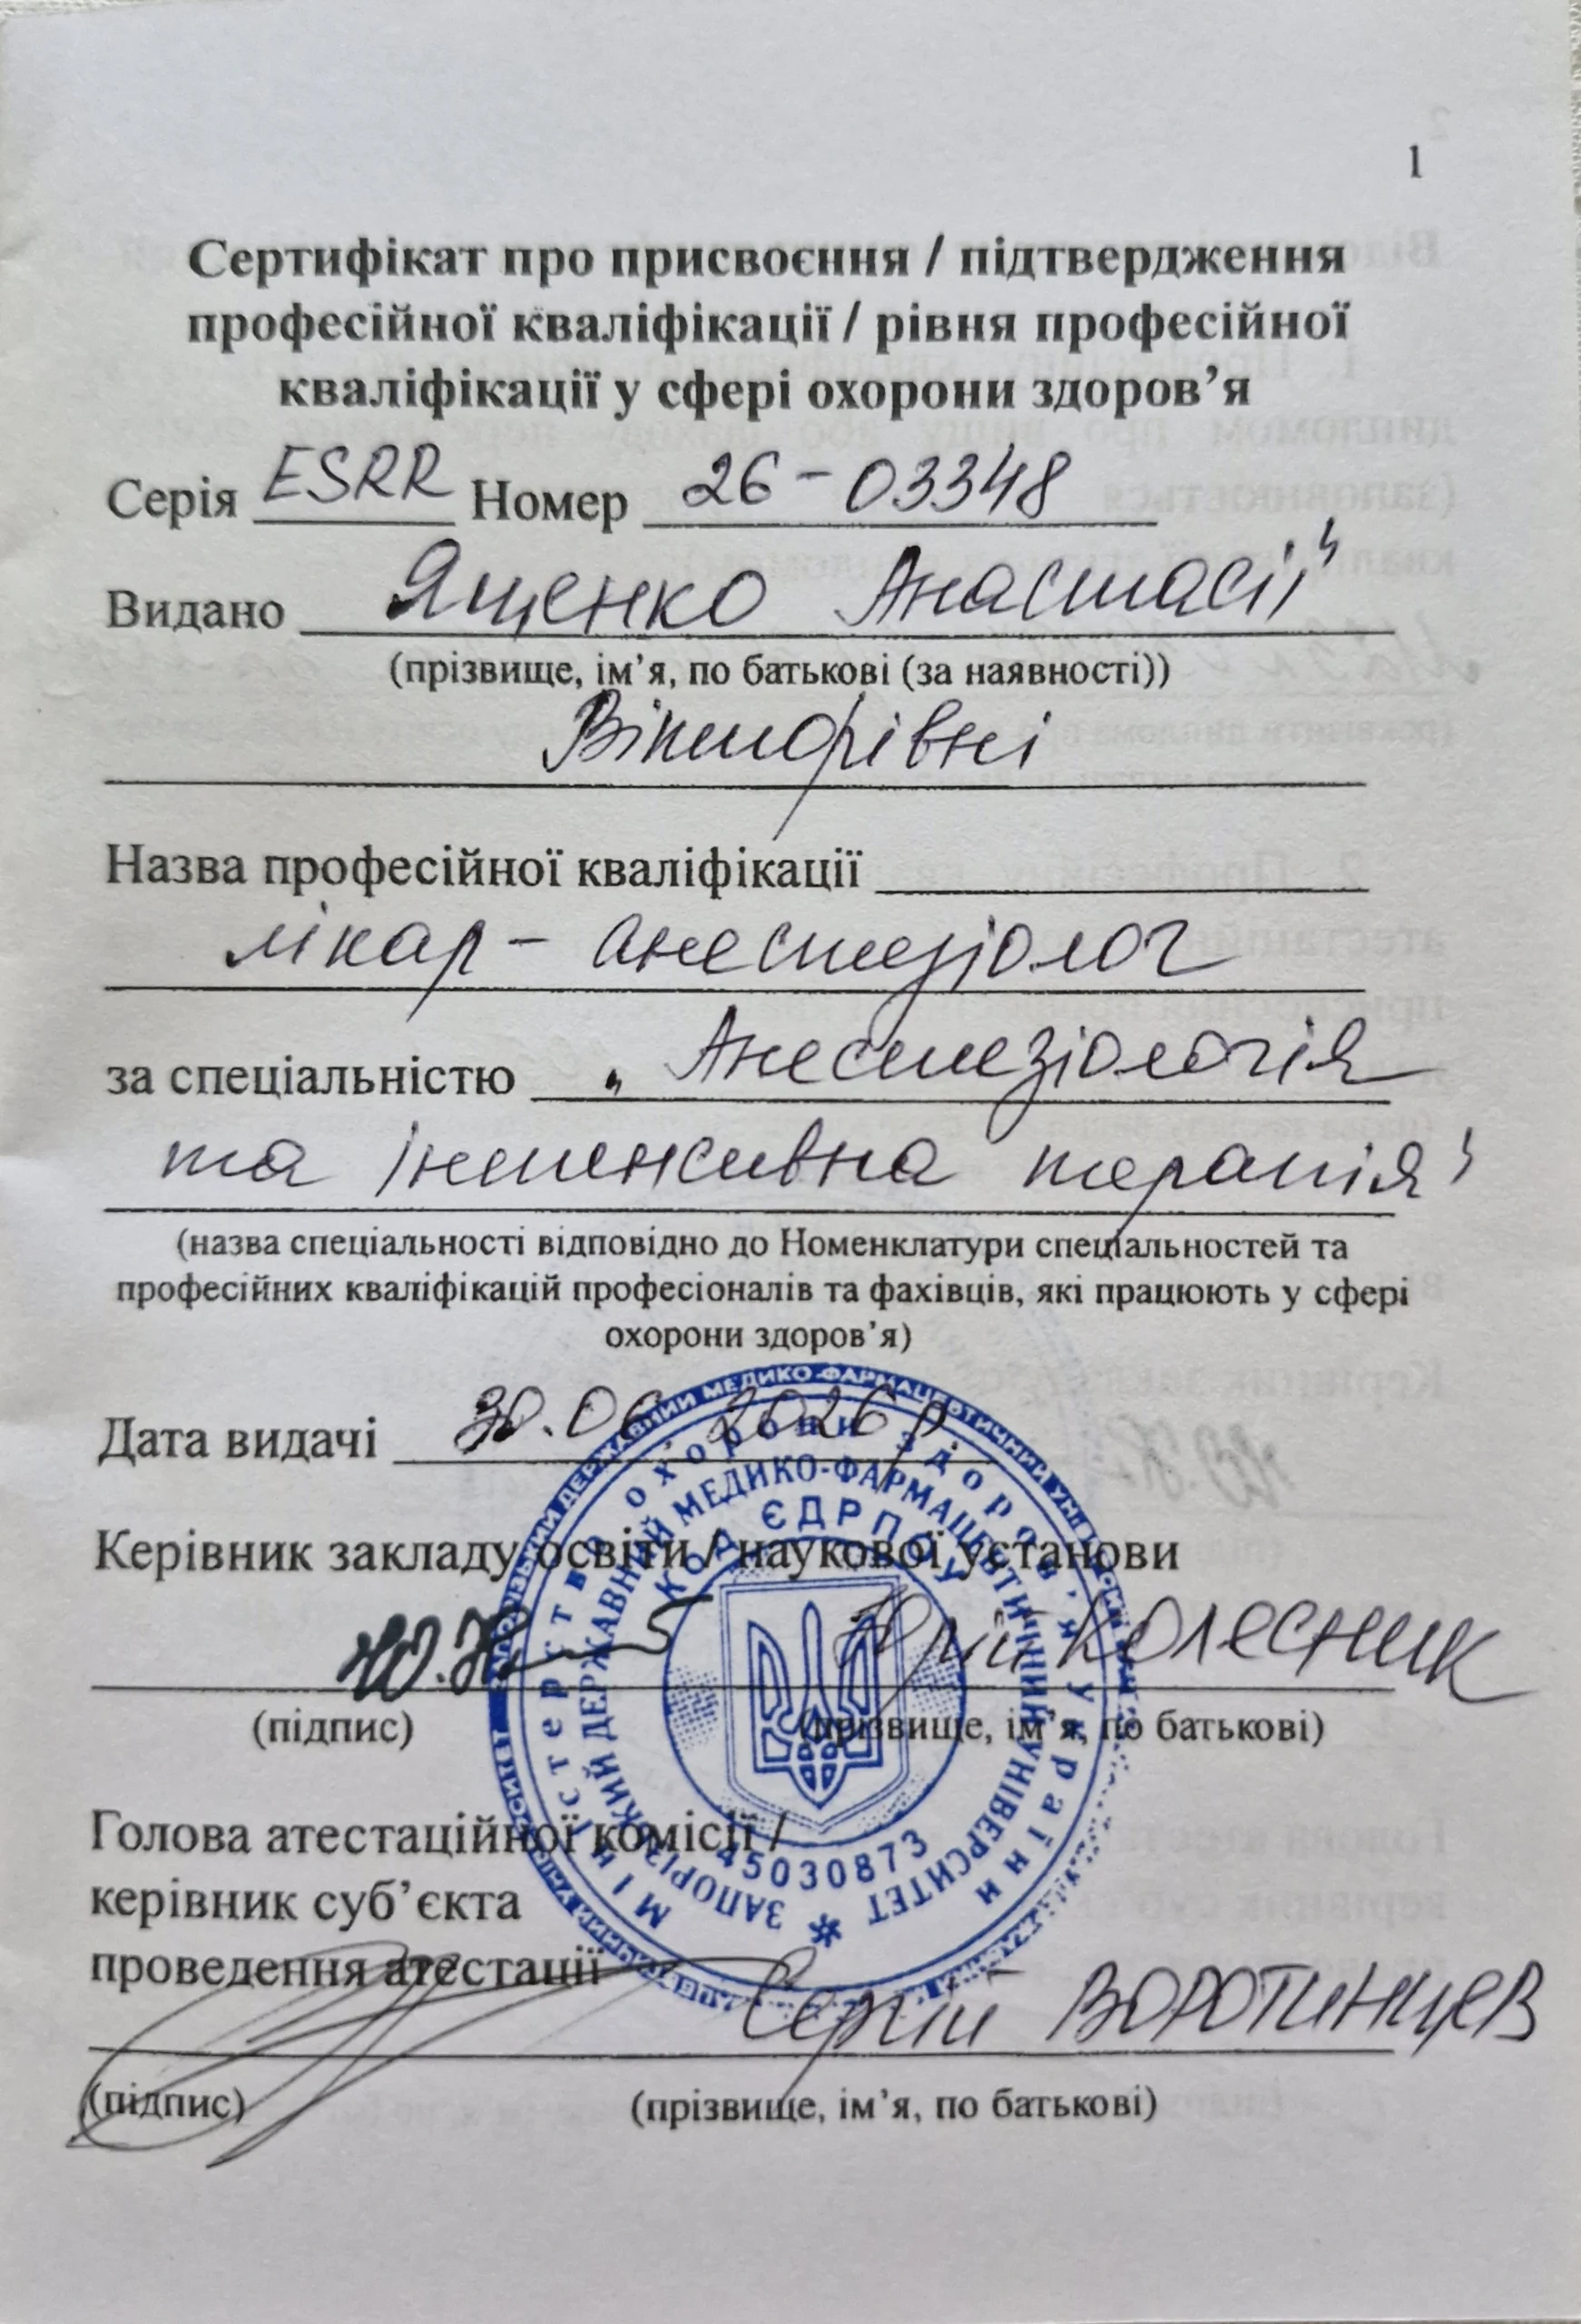 1
Сертифікат про присвоєння / підтвердження
професійної кваліфікації / рівня професійної
кваліфікації у сфері охорони здоров’я
Серія ESRR Номер 26-03348
Видано Ященко Анастасії
(прізвище, ім’я, по батькові (за наявності))
Вікторівні
Назва професійної кваліфікації
лікар - анестезіолог
за спеціальністю „ Анестезіологія
та інтенсивна терапія“
(назва спеціальності відповідно до Номенклатури спеціальностей та
професійних кваліфікацій професіоналів та фахівців, які працюють у сфері
охорони здоров’я)
Дата видачі 30.06.2026 р.
Керівник закладу освіти / наукової установи
Юрій Колесник
(підпис) (прізвище, ім’я, по батькові)
Голова атестаційної комісії /
керівник суб’єкта
проведення атестації
Сергій ВОРОТИНЦЕВ
(підпис) (прізвище, ім’я, по батькові)
Міністерство охорони здоров’я України
ЗАПОРІЗЬКИЙ ДЕРЖАВНИЙ МЕДИКО-ФАРМАЦЕВТИЧНИЙ УНІВЕРСИТЕТ
КОД ЄДРПОУ
45030873